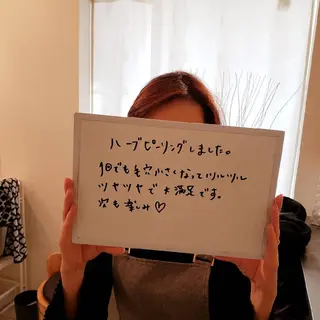 ハーブピーリングしました。
1回でも毛穴小さくなってツルツル
ツヤツヤで大満足です。
次も楽しみ♡